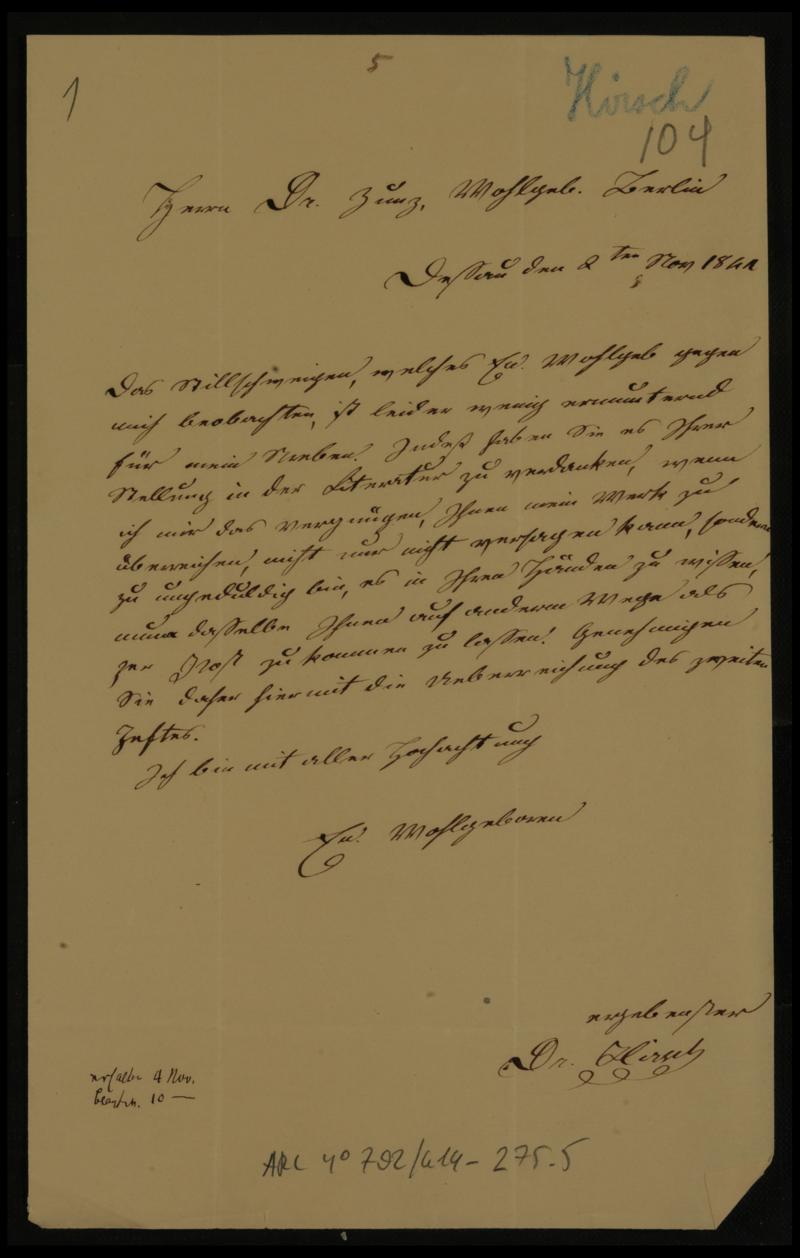 5
1
Hirsch
104
Herrn Dr. Zunz, Wohlgeb. Berlin
Dessau den 2ten Nov 1841
Das Stillschweigen, welches Ew. Wohlgeb gegen
mich beobachten, ist leider wenig ermunternd
für mein Streben. Indeß haben Sie es Ihrer
Stellung in der Literatur zu verdanken, wenn
ich mir das Vergnügen, Ihnen mein Werk zu
überreichen, nicht nur nicht versagen kann, sondern
zu ungeduldig bin, es in Ihren Händen zu wissen,
dasselbe Ihnen auf anderm Wege als
per Post zukommen zu lassen. Genehmigen
Sie daher hiermit die Ueberreichung des zweiten
Heftes.
Ich bin mit aller Hochachtung
Ew. Wohlgeboren
ergebenster
Dr. Hirsch
erhalten 4 Nov.
beantw. 10 —
ARC 4° 792/G14 - 275.5